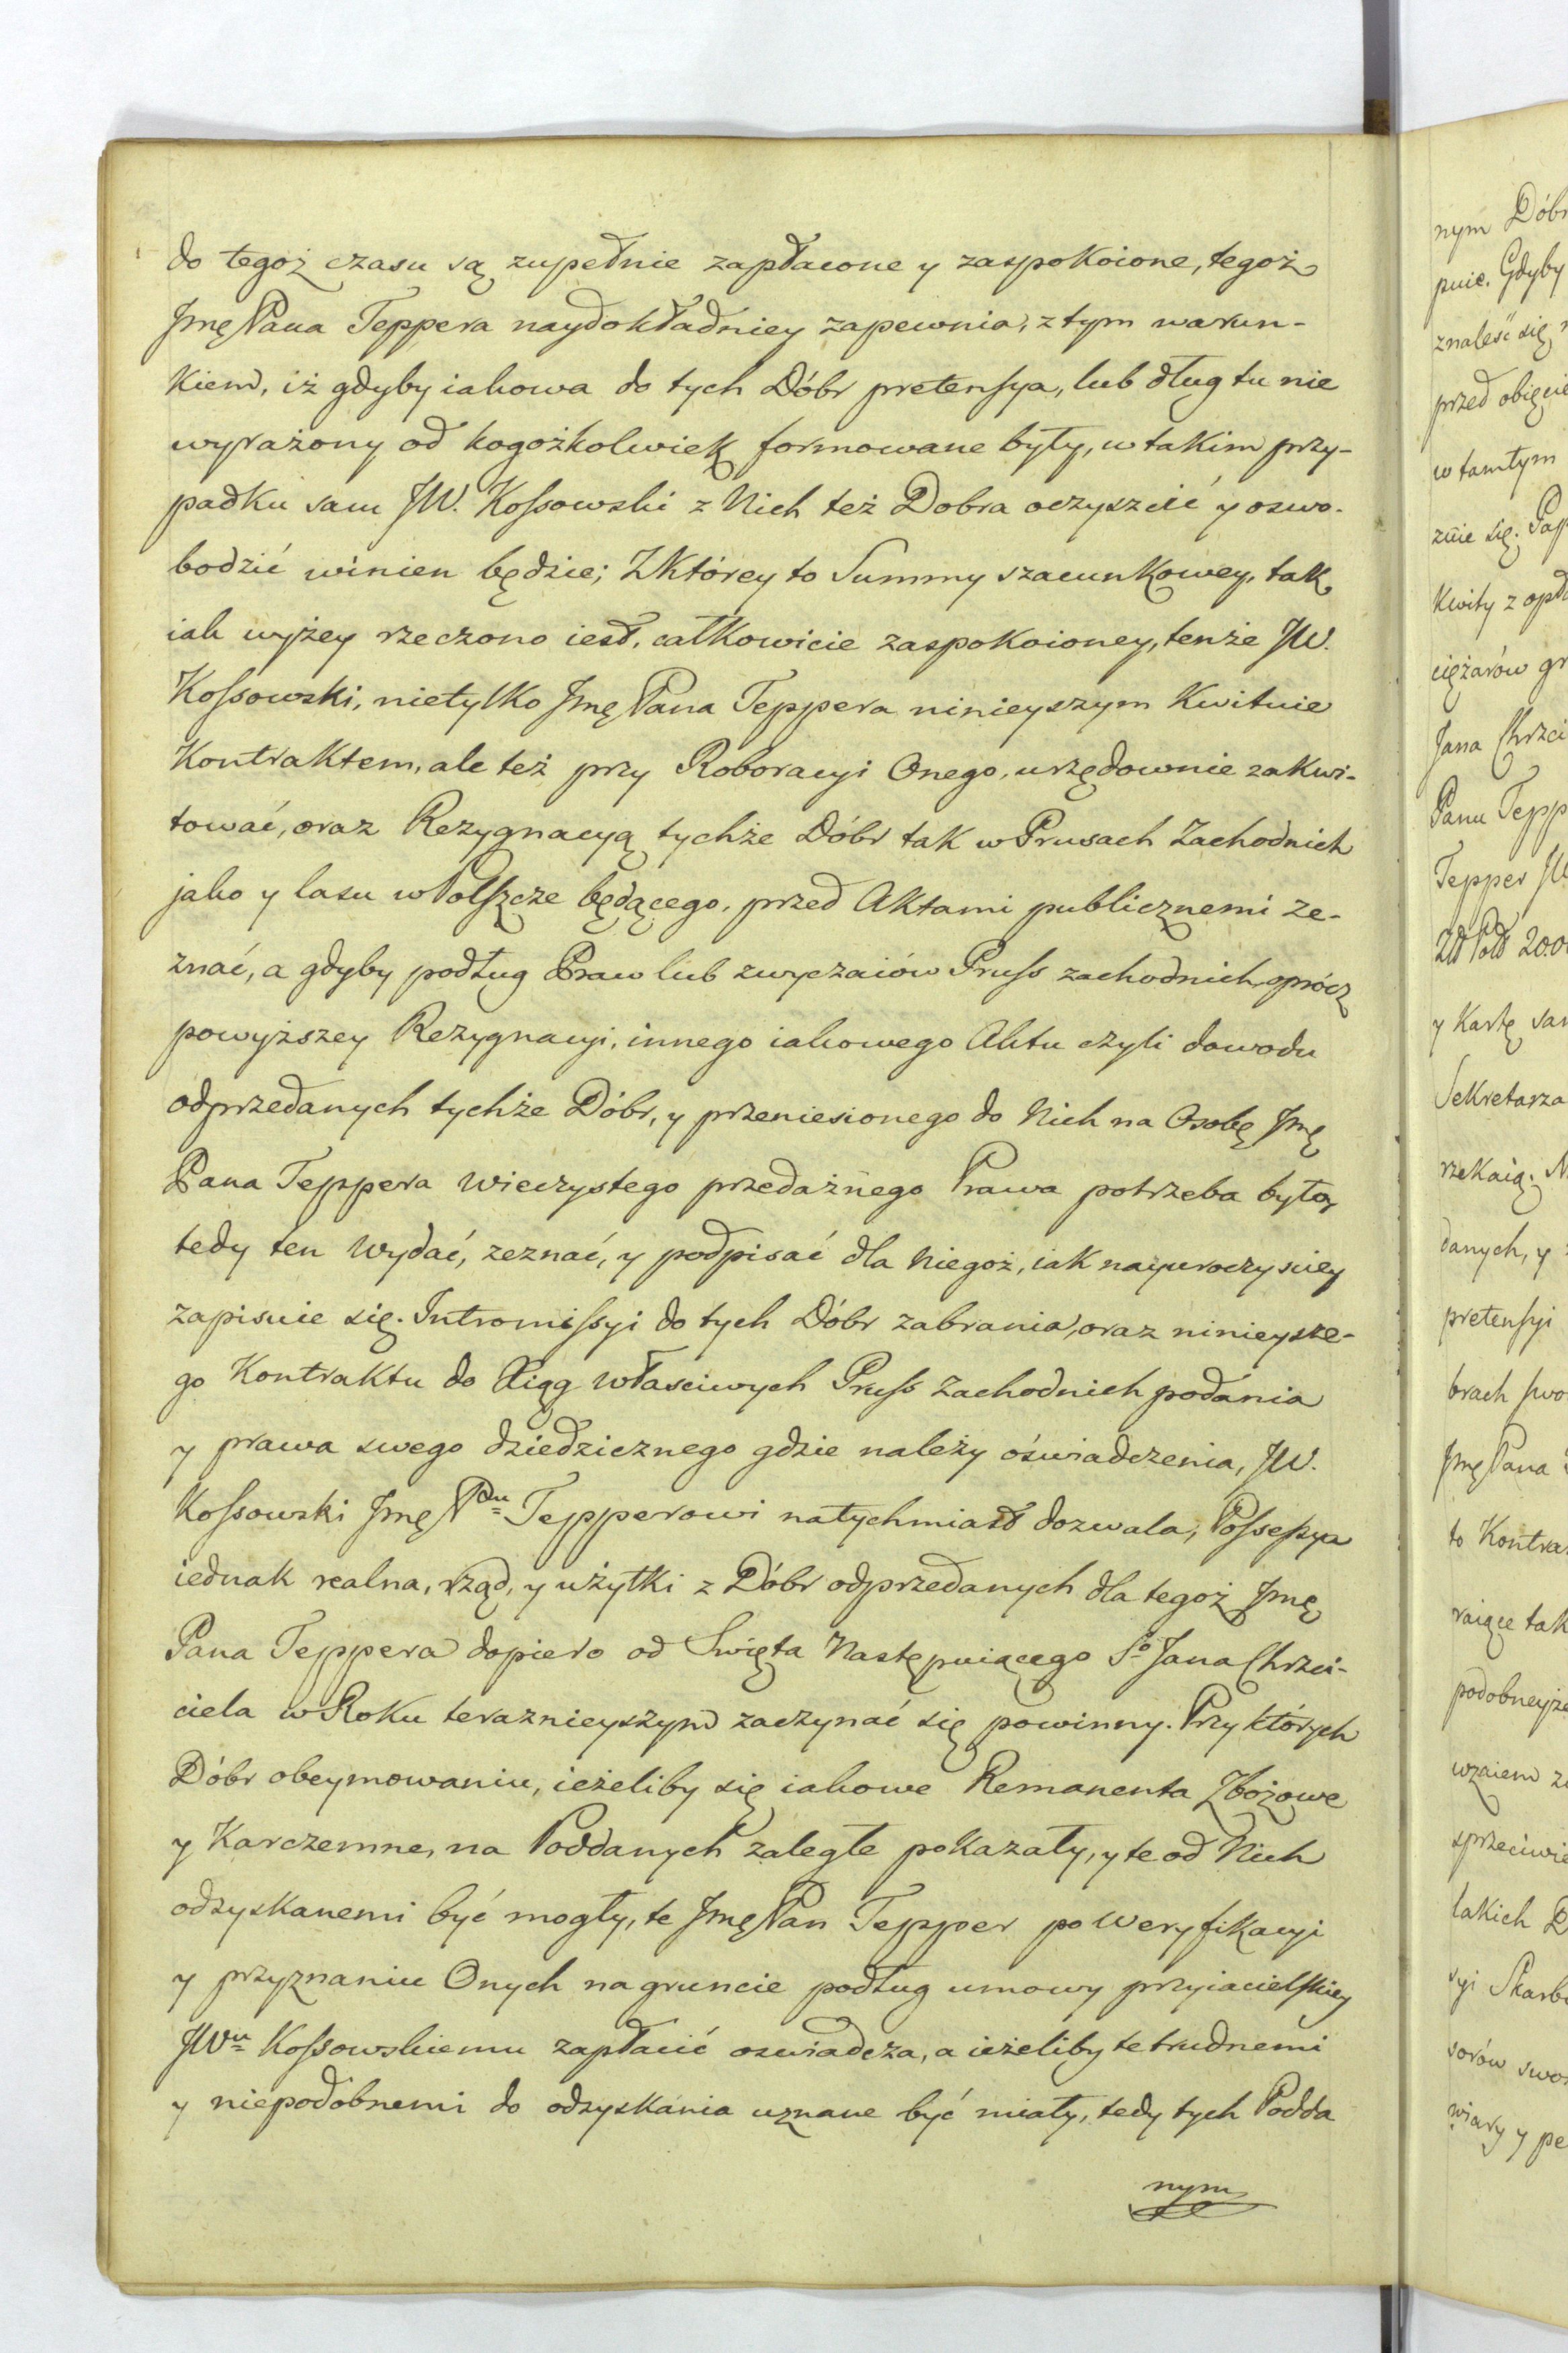 do tegoż czasu są zupełnie zapłacone y zaspokoione, tegoż
Jmę Pana Teppera naydokładniey zapewnia, z tym warun-
kiem, iż gdyby iakowa do tych Dóbr pretensya, lub dług tu nie
wyrażony od kogożkolwiek formowane były, w takim przy-
padku sam JW. Kossowski z Nich też Dobra oczyszcić y oswo-
bodzić winien będzie; Z Którey to Summy szacunkowey, tak,
iak wyżey rzeczono iest, całkowicie zaspokoioney, tenże JW.
Kossowski, nietylko Jmę Pana Teppera ninieyszym Kwituie
Kontraktem, ale też przy Roboracyi Onego, urzędownie zakwi-
tować, oraz Rezygnacyą tychże Dóbr tak w Prusach Zachodnich
jako y lasu w Polszcze będącego, przed Aktami publicznemi ze-
znać, a gdyby podług Praw lub zwyczaiów Pruss zachodnich, oprócz
powyższey Rezygnacyi, innego iakowego Aktu czyli dowodu
odprzedanych tychże Dóbr, y przeniesionego do Nich na Osobę Jmę
Pana Teppera wieczystego przedażnego Prawa potrzeba było,
tedy ten wydać, zeznać, y podpisać dla Niegoż, iak nayuroczyściey
zapisuie się. Intromissyi do tych Dóbr zabrania, oraz ninieysze-
go Kontraktu do Xiąg właściwych Pruss Zachodnich podania
y prawa swego dziedzicznego gdzie należy oświadczenia, JW.
Kossowski Jmę Pnu Tepperowi natychmiast dozwala, Possessya
iednak realna, rząd, y użytki z Dóbr odprzedanych dla tegoż Jmę
Pana Teppera dopiero od Swięta Następuiącego So Jana Chrzci-
ciela w Roku teraznieyszym zaczynać się powinny. Przy których
Dóbr obeymowaniu, ieżeliby się iakowe Remanenta Zbożowe
y Karczemne, na Poddanych zaległe pokazały, y te od Nich
odzyskanemi być mogły, te Jmę Pan Tepper po weryfikacyi
y przyznaniu Onych na gruncie podług umowy przyiacielskiey
JWu Kossowskiemu zapłacić oswiadcza, a ieżeliby te trudnemi
y niepodobnemi do odzyskania uznane być miały, tedy tych Podda
nym
nym Dóbr
puie. Gdyby
znaleść się
przed obięcie
w tamtym
Kwity z opła
ciężarów gr
Jana Chrzci
Panu Tepp
Tepper JW
y Kartę
Sekretarza
rzekaią.
danych, y
pretensyi
brach swo
Jmę Pana
to Kontra
raiące tak
podobneyże
wzaiem
sprzeciwie
takich D
syi Skarb
sorów swo
wiary y pe